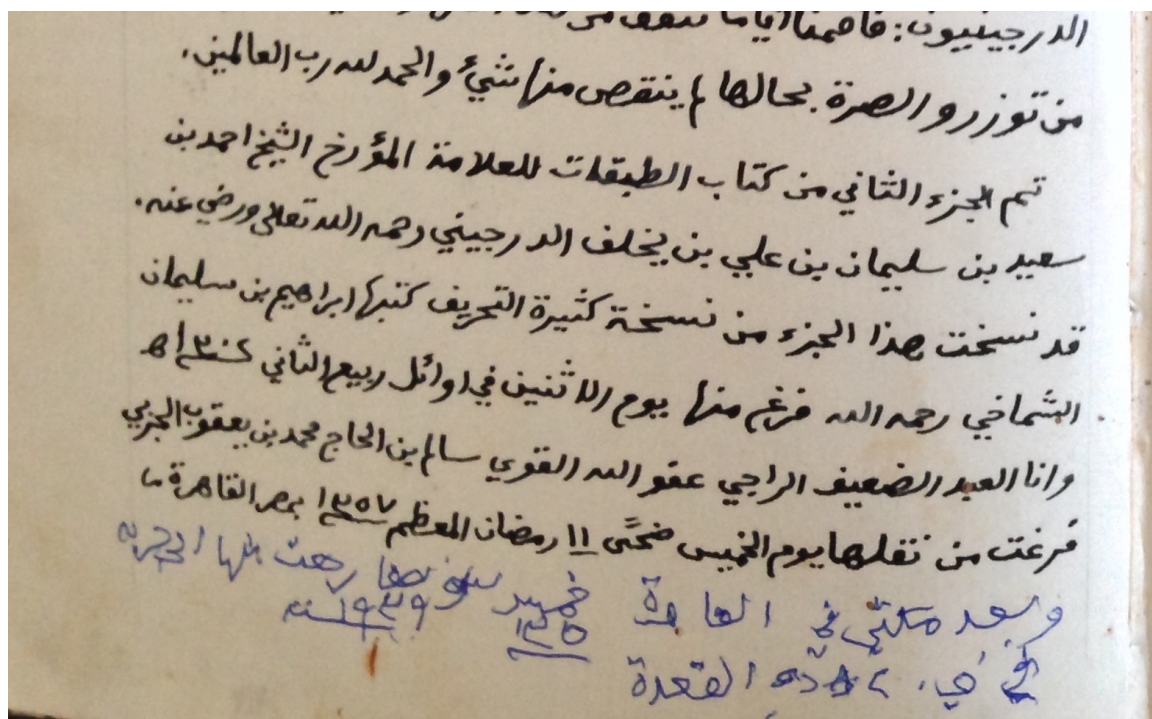 الدرجينيون: فأقمنا اياما
من توزر والصرة بحالها لم ينتقص منها شيئ والحمد لله رب العالمين.
تم الجزء الثاني من كتاب الطبقات للعلامة المؤرخ الشيخ احمد بن
سعيد بن سليمان بن علي بن يخلف الدرجيني رحمه الله تعالى ورضي عنه.
قد نسخت هذا الجزء من نسخة كثيرة التحريف كتبها ابراهيم بن سليمان
الشماخي رحمه الله فرغ منها يوم الاثنين في اوائل ربيع الثاني ١٣٠٤ھ
وانا العبد الضعيف الراجي عفو الله القوي سالم بن الحاج محمد بن يعقوب الجربي
فرغت من نقلها يوم الخميس ضحًى ١١ رمضان المعظم ١٣٥٧ بمصر القاهرة
وبعد مكثي في القاهرة رجعت
١٩٣٩
في القعدة